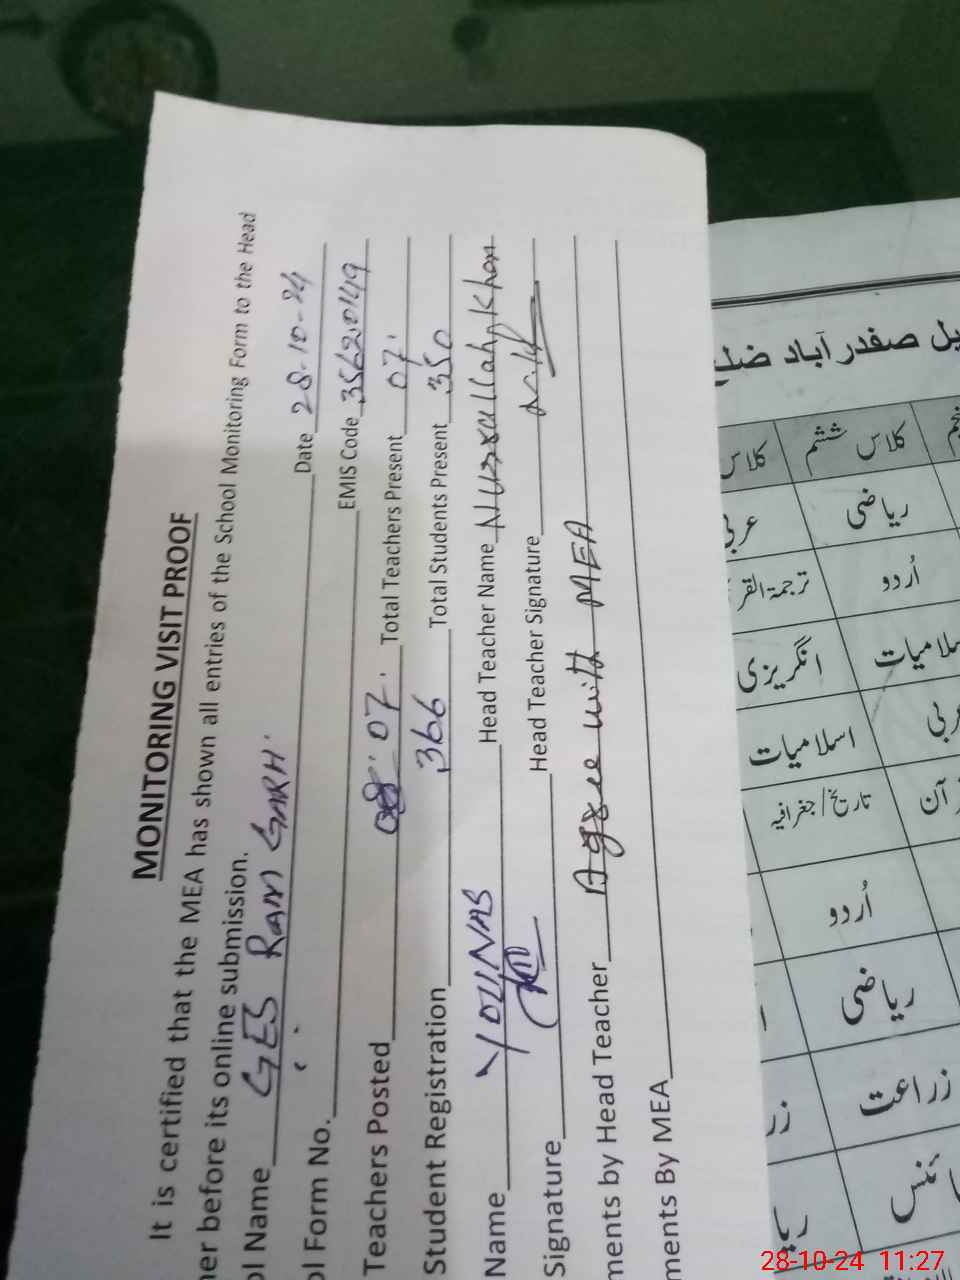 MONITORING VISIT PROOF
It is certified that the MEA has shown all entries of the School Monitoring Form to the Head
her before its online submission.
ol Name GES RAM GARH. Date 28-10-24
ol Form No. EMIS Code 35620149
Teachers Posted 07. Total Teachers Present 07.
Student Registration 366 Total Students Present 350
Name YOUNAS Head Teacher Name Nusrullah Khan
Signature Head Teacher Signature
ments by Head Teacher Agree with MEA
ments By MEA
یل صفدر آباد ضلع
کلاس کلاس ششم
عربی ریاضی
ترجمۃ القر اُردو
انگریزی سلامیات
اسلامیات عربی
تاریخ/جغرافیہ آن
اُردو
ریاضی
زر زراعت
ریا ئنس
28-10-24 11:27